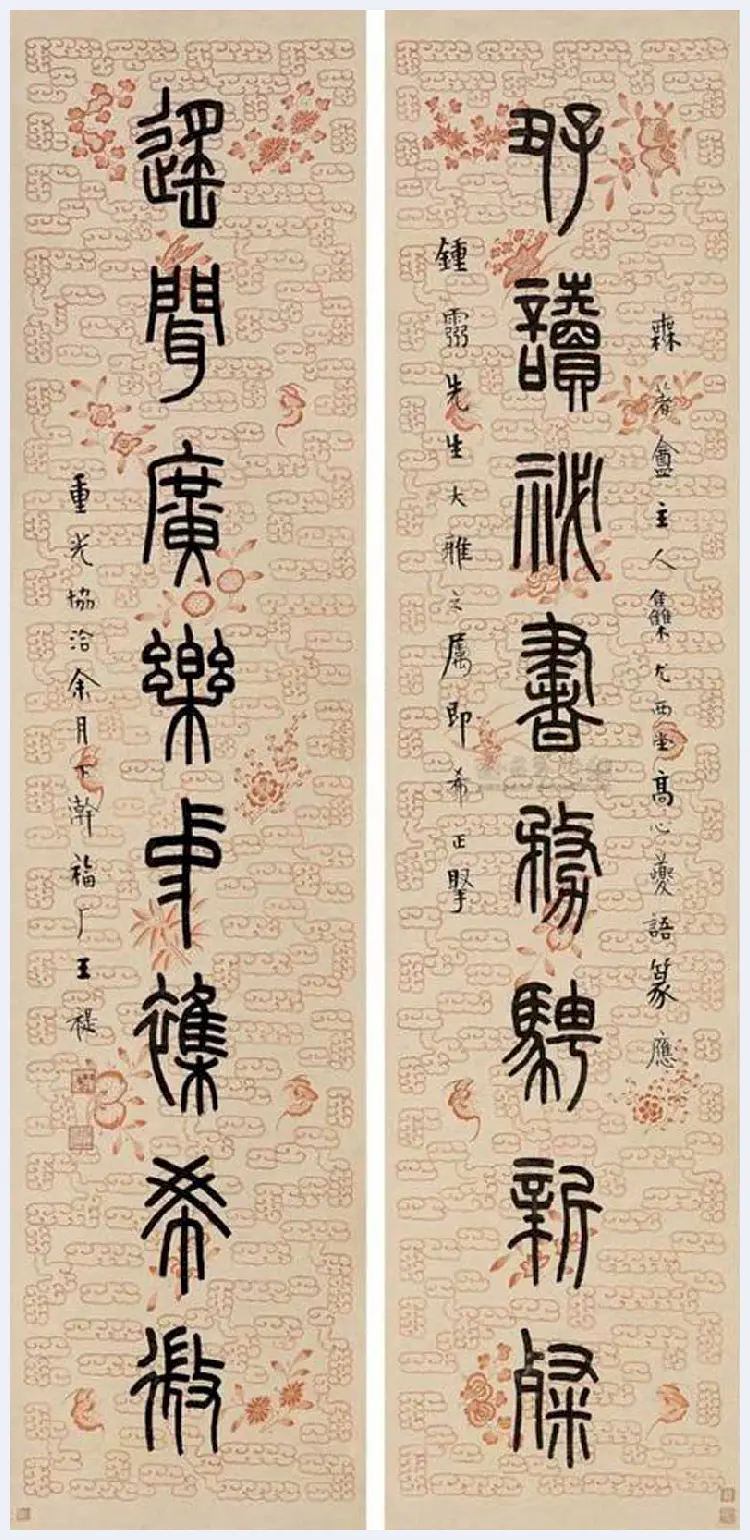 盦主人集尤西堂高心夔語篆應
好讀祕書務騁新粲
鍾先生大雅之屬即希正
遙聞廣樂事襍希微
重光協洽余月下澣福厂王禔